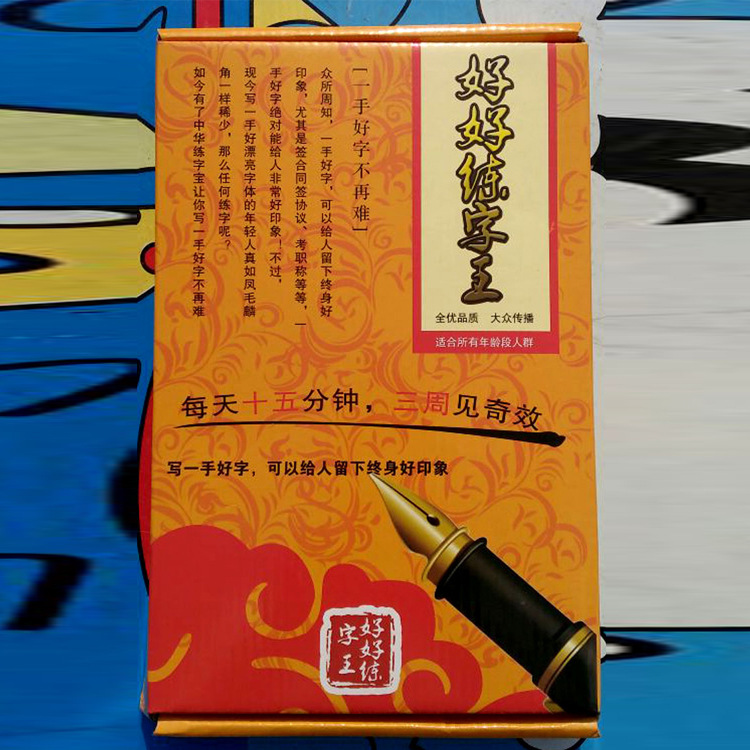 好好练字王
全优品质 大众传播
适合所有年龄段人群
[一手好字不再难]
众所周知，一手好字，可以给人留下终身好
印象，尤其是签合同签协议、考职称等等，一
手好字绝对能给人非常好印象！不过，
现今写一手好漂亮字体的年轻人真如凤毛麟
角一样稀少，那么任何练字呢？
如今有了中华练字宝让你写一手好字不再难
每天十五分钟，三周见奇效
写一手好字，可以给人留下终身好印象
好好练
字王